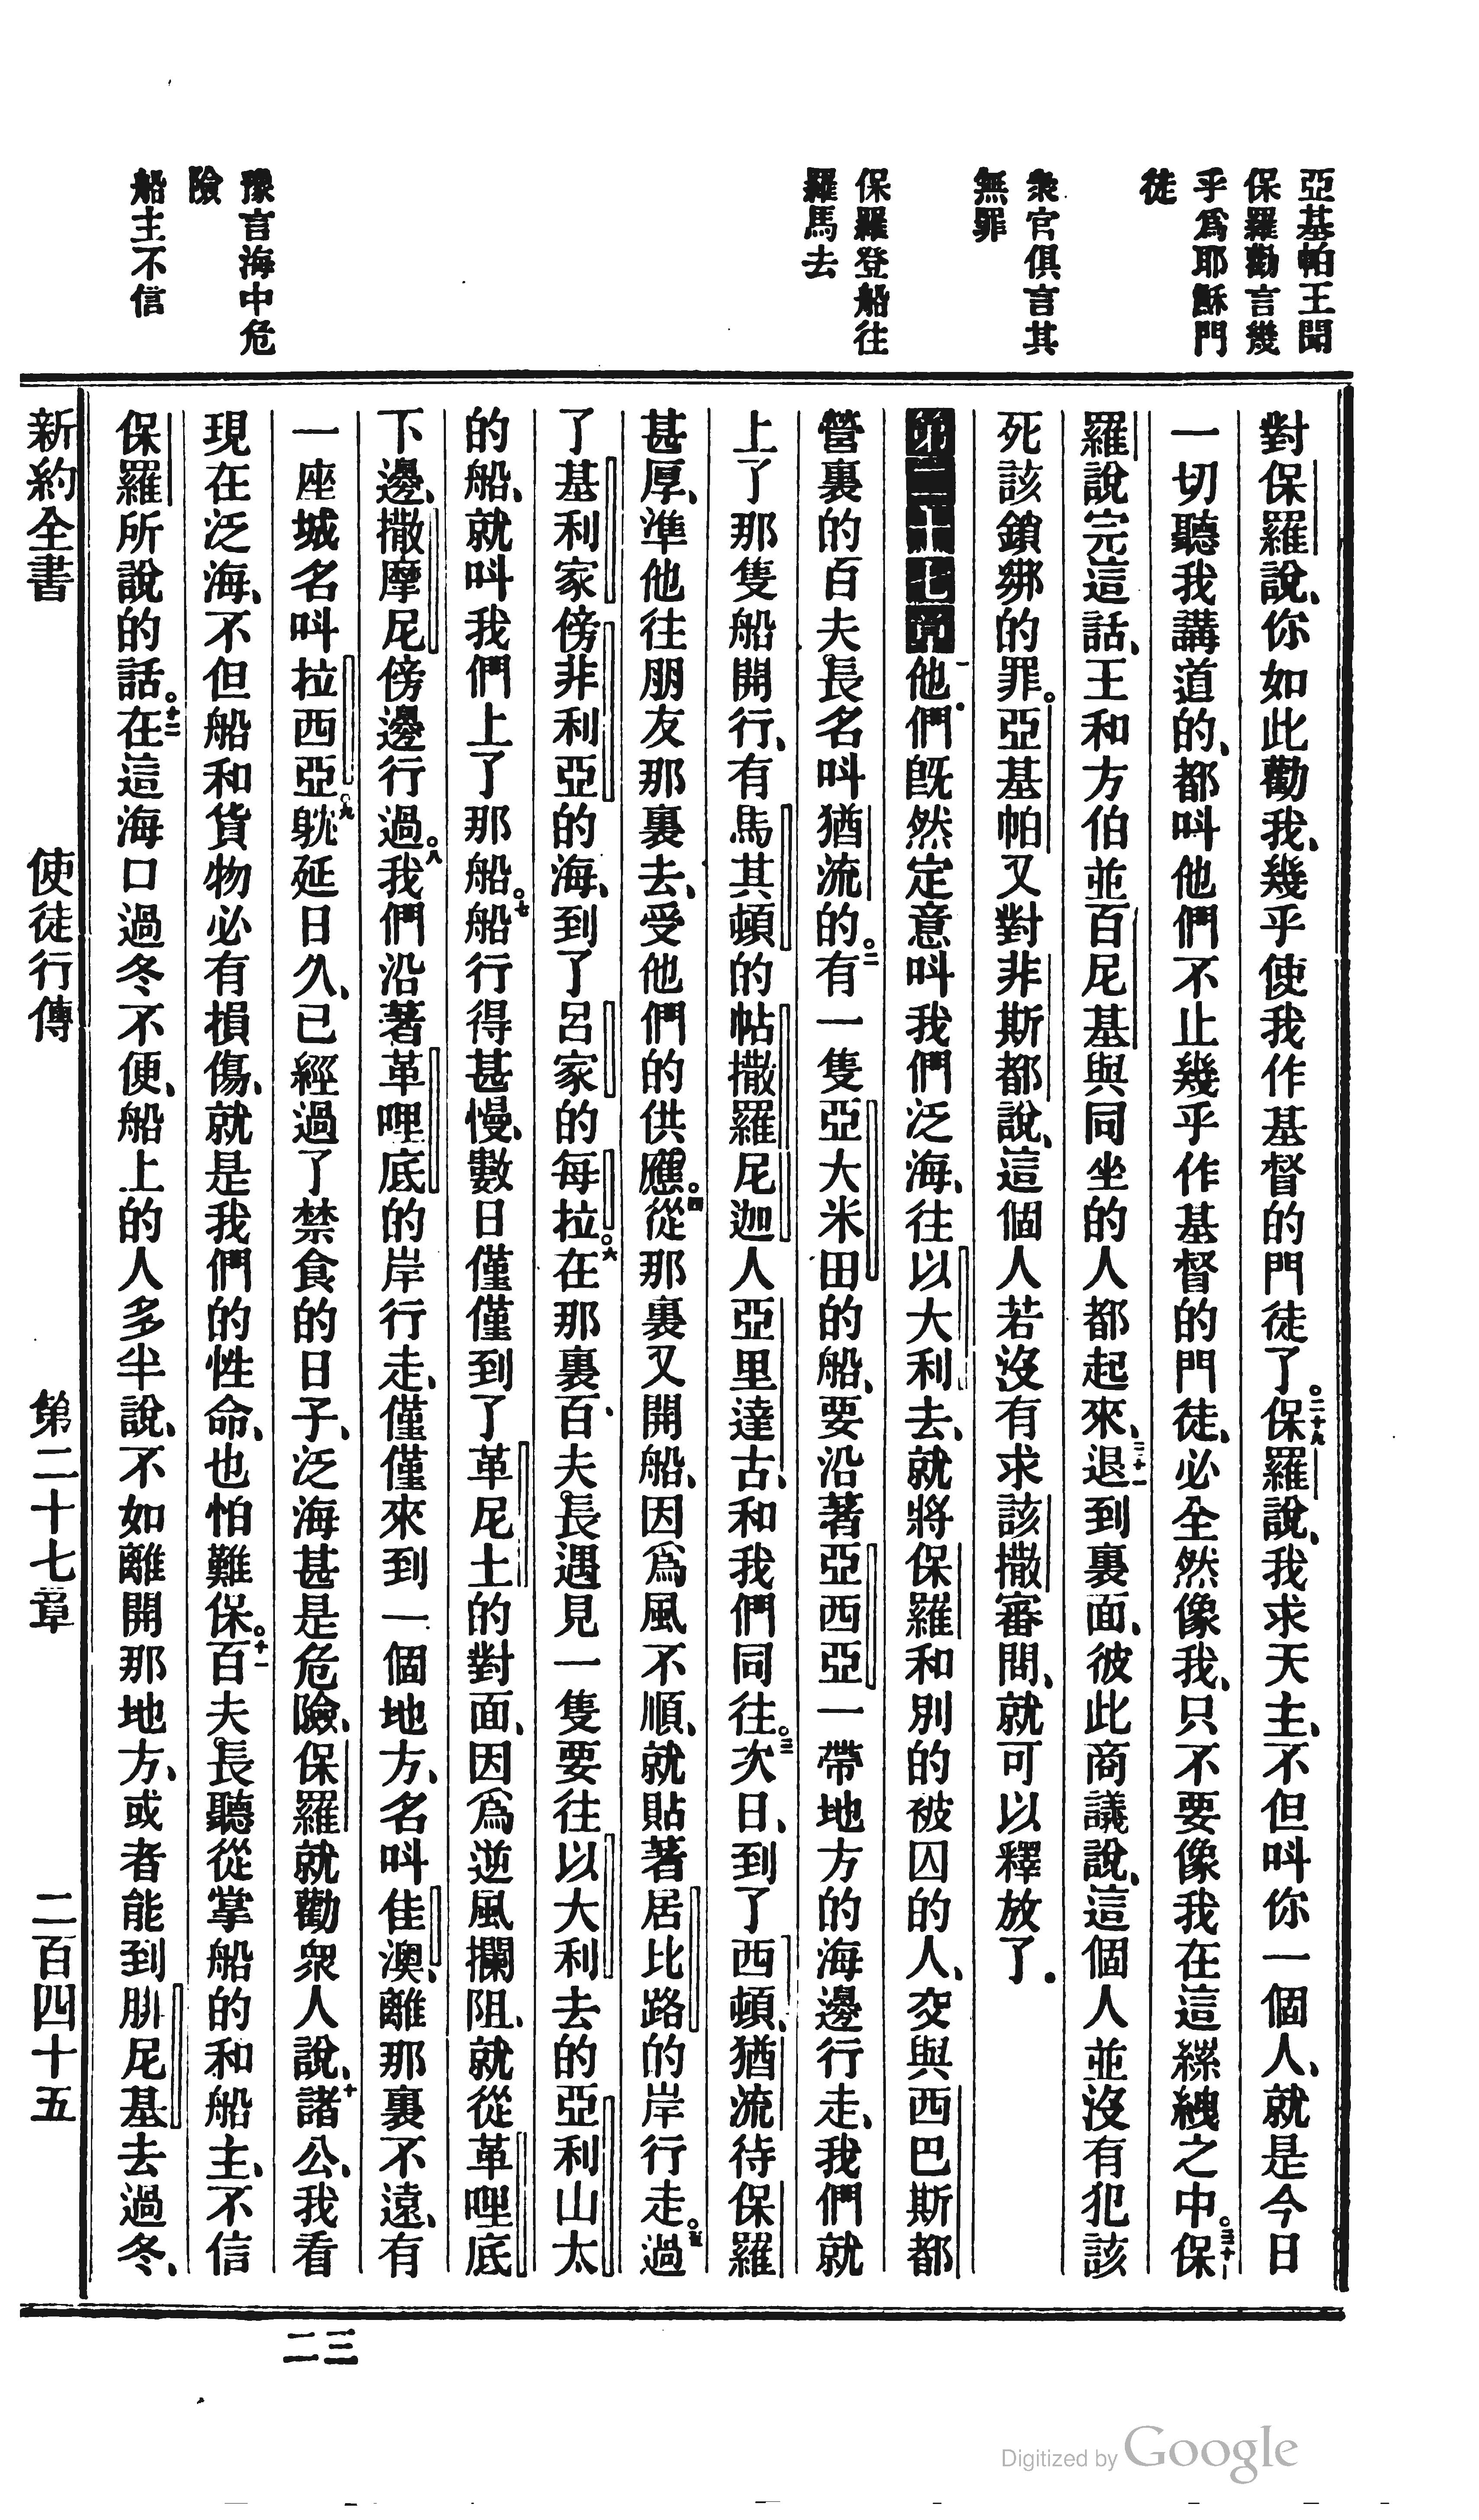 亞基帕王聞
保羅勸言幾
乎爲耶穌門
徒
衆官俱言其
無罪
保羅登船往
羅馬去
豫言海中危
險
船主不信
對保羅說、你如此勸我、幾乎使我作基督的門徒了。二十九保羅說、我求天主、不但叫你一個人、就是今日
一切聽我講道的、都叫他們不止幾乎作基督的門徒、必全然像我、只不要像我在這縲絏之中。三十保
羅說完這話、王和方伯並百尼基與同坐的人都起來、三十一退到裏面、彼此商議說、這個人並沒有犯該
死該鎖綁的罪。亞基帕又對非斯都說、這個人若沒有求該撒審問、就可以釋放了。
第二十七章一他們旣然定意叫我們泛海、往以大利去、就將保羅和別的被囚的人、交與西巴斯都
營裏的百夫長名叫猶流的。二有一隻亞大米田的船、要沿著亞西亞一帶地方的海邊行走、我們就
上了那隻船開行、有馬其頓的帖撒羅尼迦人亞里達古、和我們同往。三次日、到了西頓、猶流待保羅
甚厚、準他往朋友那裏去、受他們的供應。四從那裏又開船、因爲風不順、就貼著居比路的岸行走。五過
了基利家傍非利亞的海、到了呂家的每拉。六在那裏、百夫長遇見一隻要往以大利去的亞利山太
的船、就叫我們上了那船。七船行得甚慢、數日僅僅到了革尼土的對面、因爲逆風攔阻、就從革哩底
下邊、撒摩尼傍邊行過。八我們沿著革哩底的岸行走、僅僅來到一個地方、名叫佳澳、離那裏不遠、有
一座城名叫拉西亞。九躭延日久、已經過了禁食的日子、泛海甚是危險、保羅就勸衆人說、十諸公、我看
現在泛海、不但船和貨物必有損傷、就是我們的性命、也怕難保。十一百夫長聽從掌船的和船主、不信
保羅所說的話。十二在這海口過冬不便、船上的人多半說、不如離開那地方、或者能到腓尼基去過冬、
新約全書　使徒行傳　第二十七章　二百四十五
三二
Digitized by Google